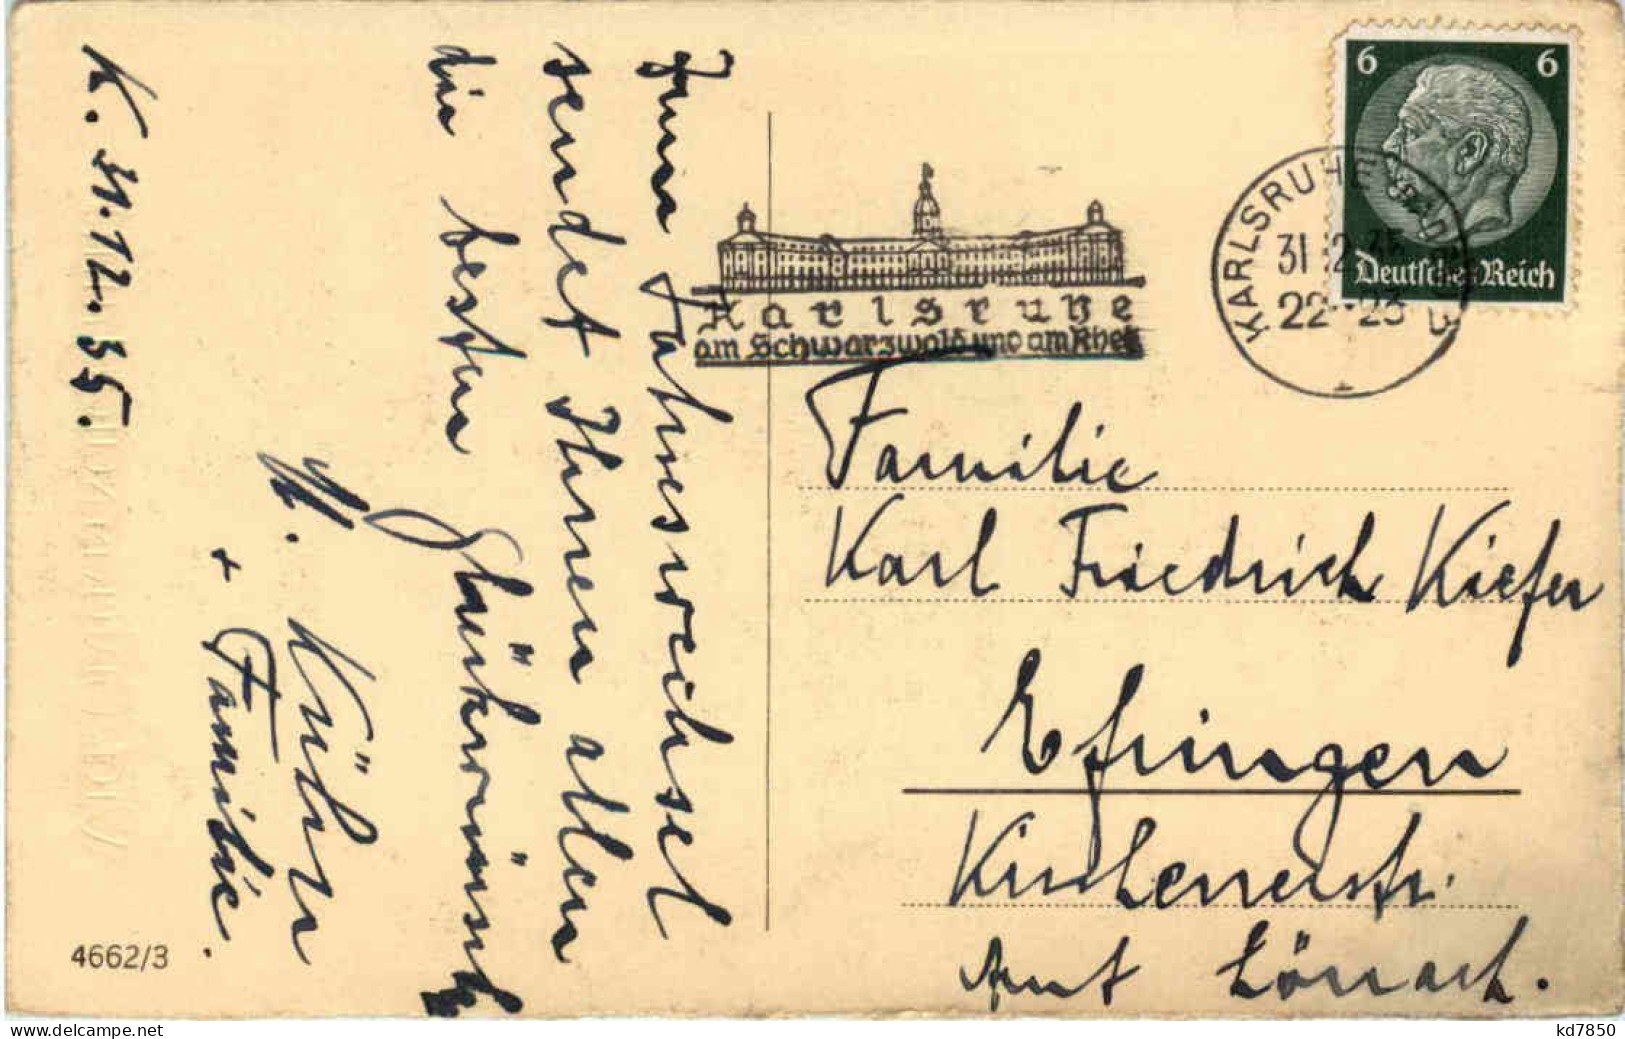 K. 31.12.35.
Zum Jahreswechsel
sendet Ihnen allen
die besten Glückwünsche
H. Kühn
+ Familie.
4662/3
Karlsruhe
am Schwarzwald und am Rhein
KARLSRUHE
31.12.35
22-23
6 6
Deutsches Reich
Familie
Karl Friedrich Kiefer
Efringen
Kirchenerstr.
Amt Lörrach.
kd7850